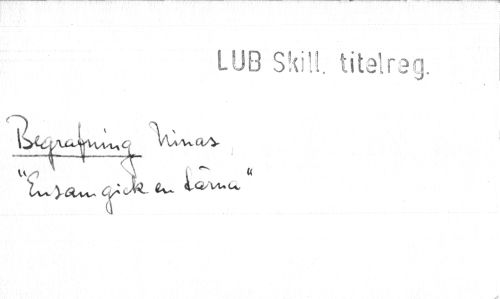 LUB Skill. titelreg.
Begrafning Ninas
"Ensam gick en tärna"